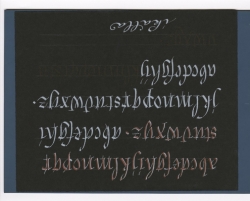 abcdefghijklmnopqr
stuvwxyz · abcdefghi
jklmnopqrstuvwxyz ·
abcdefghij